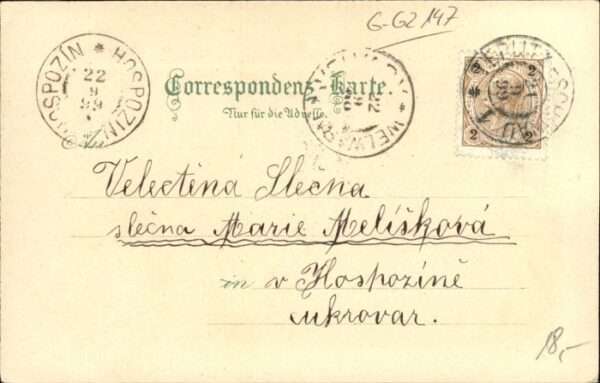 G-G2 147
HOSPOZÍN * HOSPOZIN
22
9
99
Correspondenz-Karte.
Nur für die Adresse.
WELWARN
22
2
2 2
Velectěná Slečna
slečna Marie Melíšková
in v Hospozíně
cukrovar.
18,-